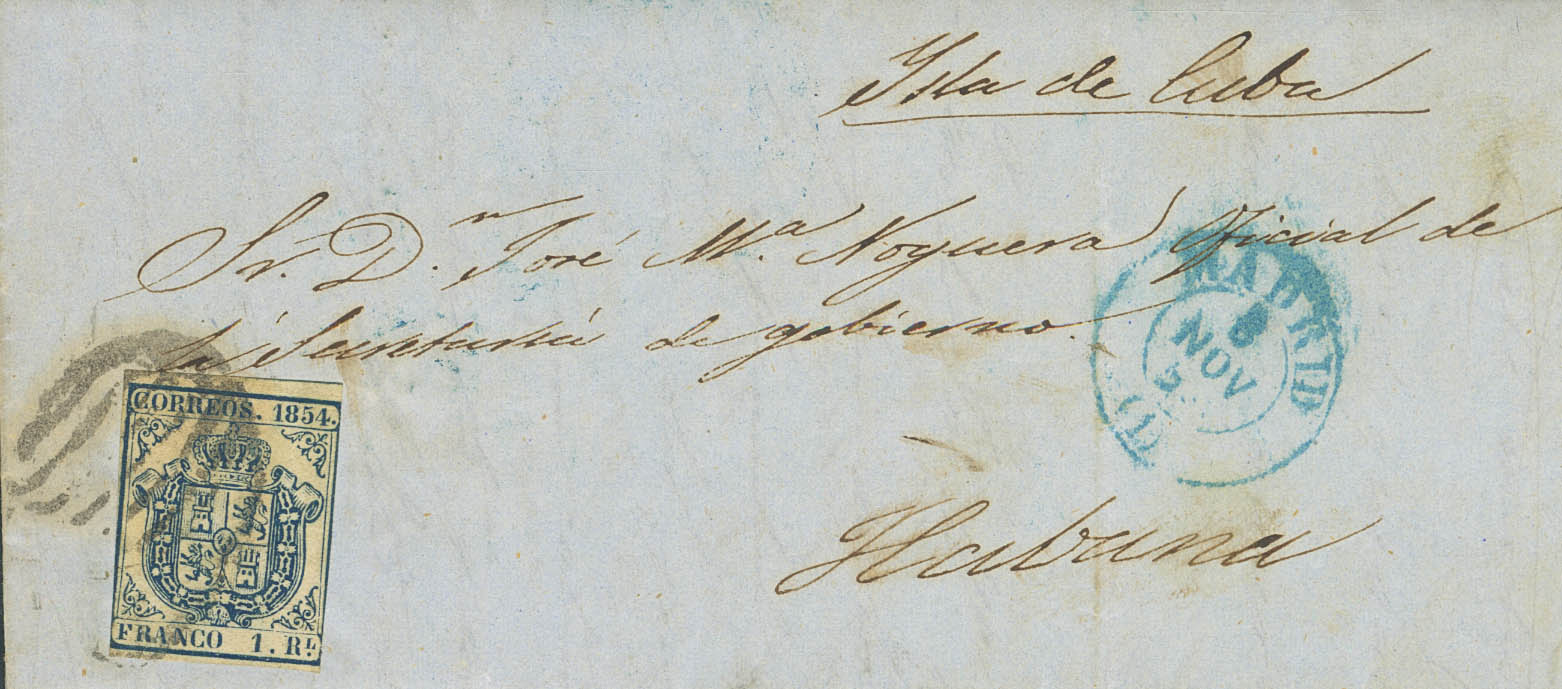 Isla de Cuba
Sr. Dn. José Ma. Noguera Oficial de
la Secretaría de gobierno.
Habana
MADRID
6
NOV
(1)
CORREOS. 1854.
FRANCO 1. Rl.